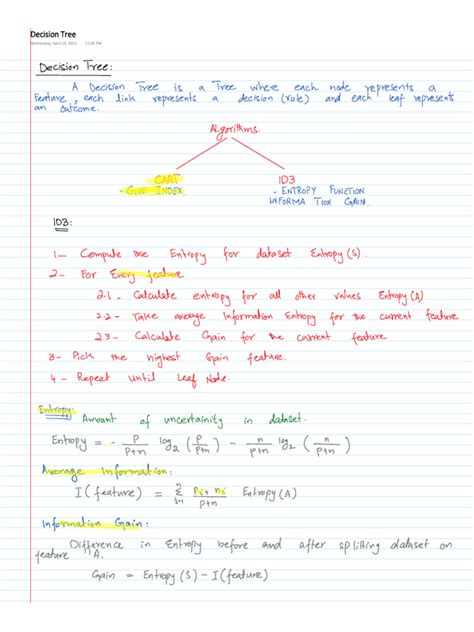 Decision Tree
Wednesday, April 14, 2021 11:06 PM
Decision Tree:
A Decision Tree is a Tree where each node represents a
Feature, each link represents a decision (rule) and each leaf represents
an outcome.
Algorithms
CART ID3
- GINI INDEX. - ENTROPY FUNCTION
INFORMA TION GAIN.
ID3:
1- Compute the Entropy for dataset Entropy(S).
2- For Every feature
2.1- Calculate entropy for all other values Entropy(A)
2.2- Take average Information Entropy for the current feature
2.3- Calculate Gain for the current feature
3- Pick the highest Gain feature.
4- Repeat until Leaf Node.
Entropy: Amount of uncertainity in dataset.
Entropy = - p/p+n log2 (p/p+n) - n/p+n log2 (n/p+n)
Average Information:
I(feature) = Σ n i=1 pi + ni/p+n Entropy(A)
Information Gain:
Difference in Entropy before and after splitting dataset on
feature A.
Gain = Entropy(S) - I(feature)